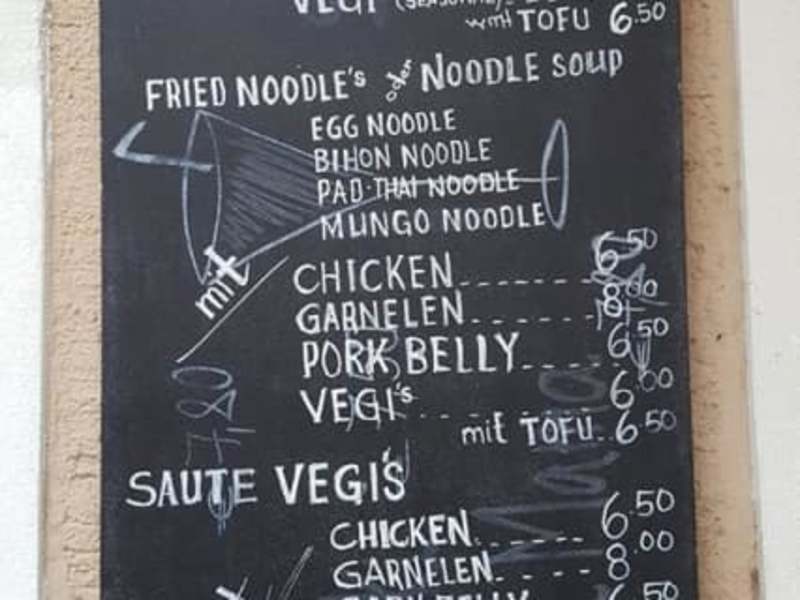 VEGI (SEASONAL)
with TOFU 6.50
FRIED NOODLE's oder NOODLE SOUP
EGG NOODLE
BIHON NOODLE
PAD THAI NOODLE
MUNGO NOODLE
mit
CHICKEN 6.50
GARNELEN 8.00
PORK BELLY 6.50
VEGI's 6.00
mit TOFU 6.50
SAUTE VEGI'S
CHICKEN 6.50
GARNELEN 8.00
PORK BELLY 6.50